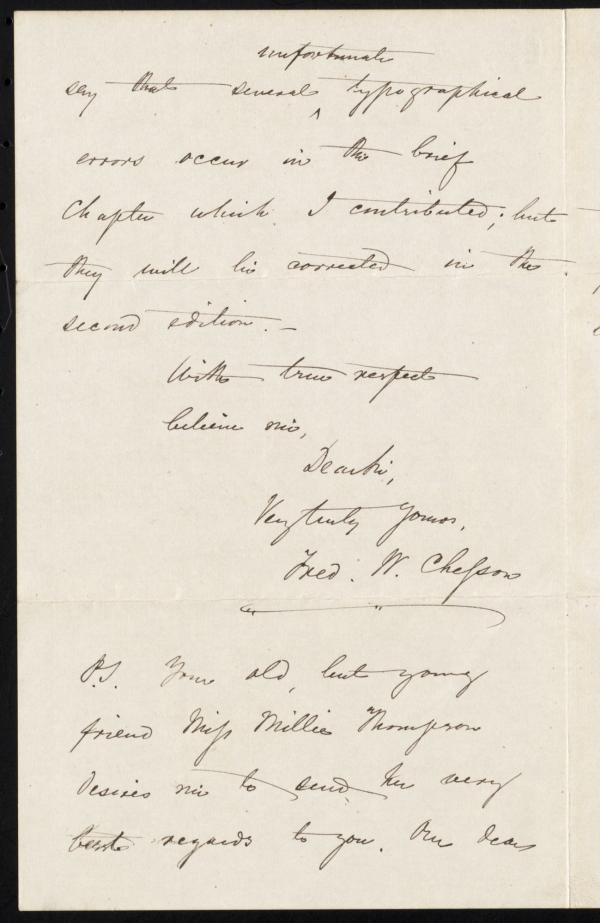 unfortunate
say that several ^ typographical
errors occur in the brief
Chapter which I contributed; but
they will be corrected in the
second edition. —
With true respect
believe me,
Dear Sir,
Very truly Yours,
Fred. W. Chesson
P.S. Your old, but young
friend Miss Millie Thompson
desires me to send her very
best regards to you. Our dear